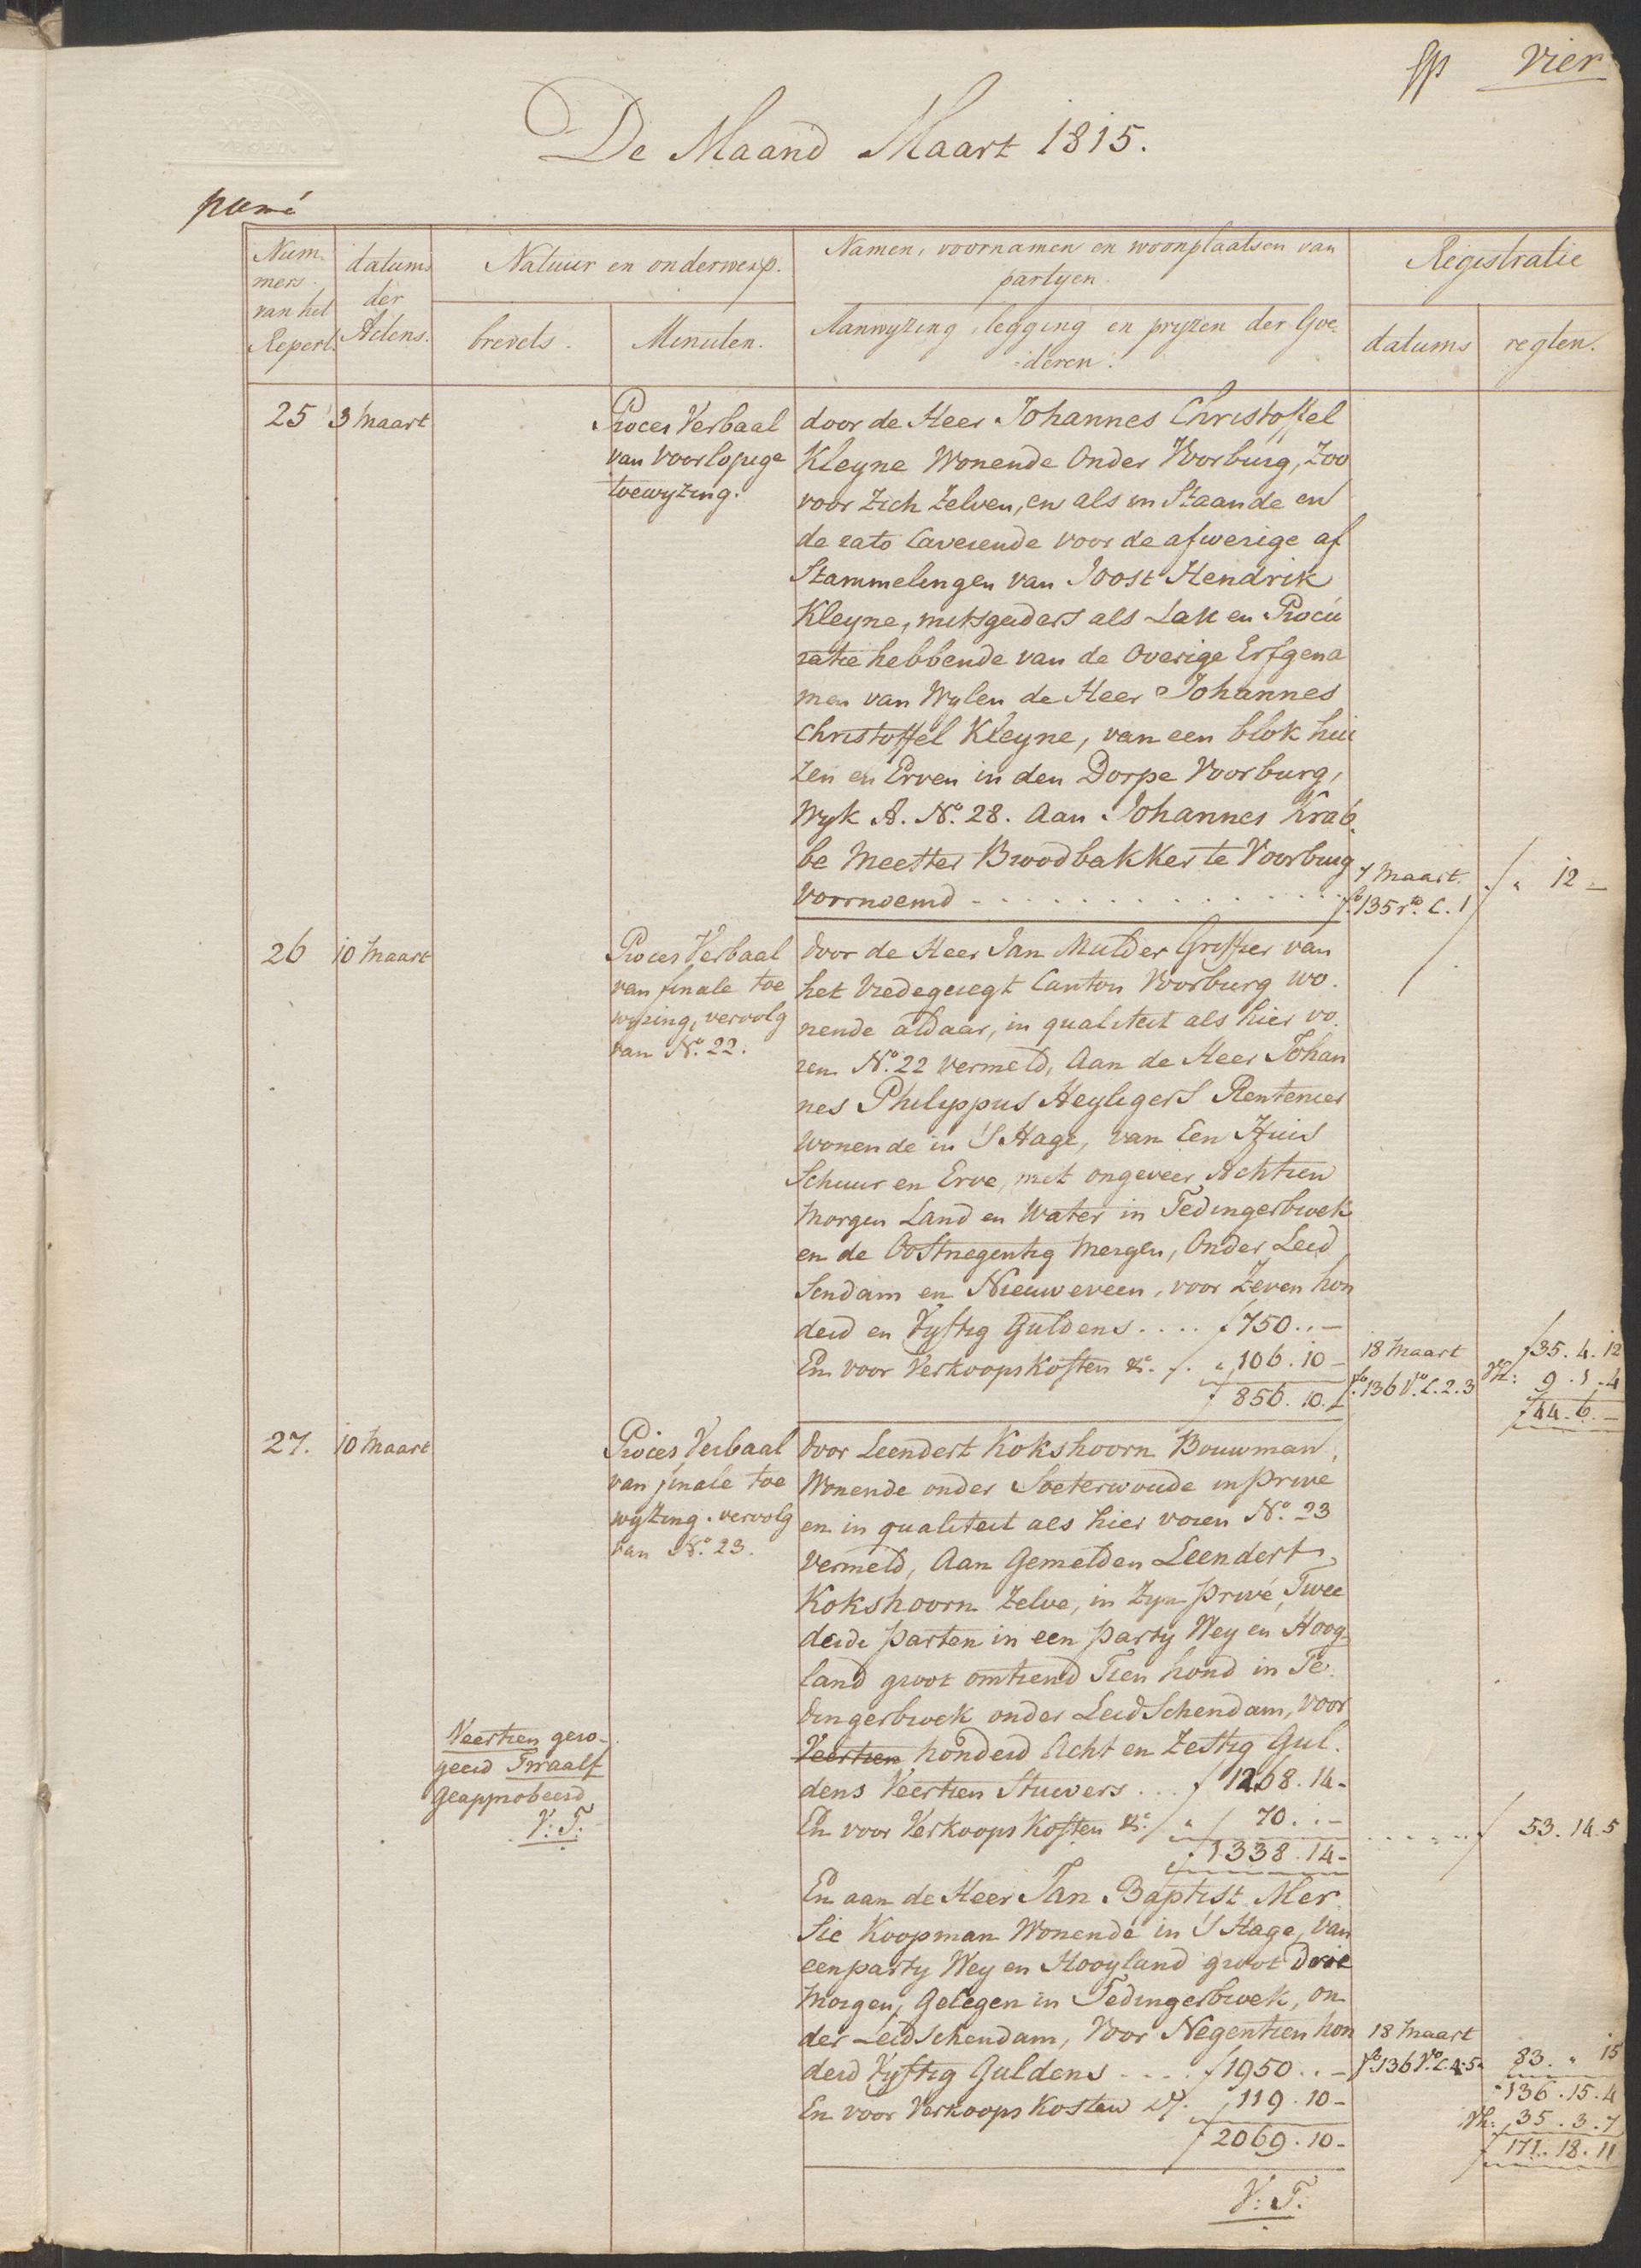 Vier
De Maand Maart 1815.
Num-
mers
van het
Repert.
datums
der
Actens.
Natuur en onderwerp.
brevets.
Minuten.
Namen, voornamen en woonplaatsen van
partyen.
Aanwyzing, legging en pryzen der Goe-
deren.
Registratie
datums
regten.
25
3 Maart
Proces Verbaal
van Voorlopige
toewyzing.
door de Heer Johannes Christoffel
Kleyne Wonende Onder Voorburg, Zoo
voor Zich Zelven, en als in Staande en
de rato Caverende voor de afwezige af
Stammelingen van Joost Hendrik
Kleyne, mitsgaders als Last en Procu
ratie hebbende van de Overige Erfgena
men van Wylen de Heer Johannes
Christoffel Kleyne, van een blok hui
zen en Erven in den Dorpe Voorburg,
Wyk A. No. 28. Aan Johannes Krab-
be Meester Broodbakker te Voorburg
Voornoemd
7 Maart.
fo 135 ro. C. 1
" 12 -
26
10 Maart
Proces Verbaal
van finale toe
wyzing, vervolg
van No. 22.
door de Heer Jan Mulder Griffier van
het Vredegeregt Canton Voorburg wo-
nende aldaar, in qualiteit als hier vo
ren No. 22 vermeld, Aan de Heer Johan
nes Philippus Heyligers Rentenier
wonende in S Hage, van Een Huis
Schuur en Erve, met ongeveer Achtien
Morgen Land en Water in Tedingerbroek
en de Oostnegentig Mergen, Onder Leid
Sendam en Nieuweveen, voor Zeven hon
derd en Vyftig Guldens .... f 750..-
En voor Verkoops Kosten &c. " 106.10-
f 856.10.-
18 Maart
fo 136 Vo. C. 2. 3
f 35. 4. 12
9. 1. 4
f 44. 6. -
27.
10 Maart
Proces Verbaal
van finale toe
wyzing. vervolg
van No. 23.
door Leendert Kokshoorn Bouwman,
Wonende onder Soeterwoude in prive
en in qualiteit als hier voren No. 23
Vermeld, Aan Gemelden Leendert
Kokshoorn Zelve, in Zyn privé, Twee
derde parten in een party Wey en Hooy-
land groot omtrend Tien hond in Te-
dingerbroek onder LeidSchendam, voor
Veertien honderd Acht en Zestig Gul-
dens Veertien Stuivers ... f 1268.14-
En voor Verkoops Kosten &c. " 70..-
f 1338.14-
53. 14. 5
Veertien gero-
geerd Twaalf
Geapprobeerd
V: T:
En aan de Heer Jan Baptist Mer
sie Koopman Wonende in S Hage, van
een party Wey en Hooyland groot Drie
Morgen, Gelegen in Tedingerbroek, on
der LeidSchendam, Voor Negentien hon
derd Vyftig Guldens .... f 1950..-
En voor Verkoops Kosten &c. f 119.10-
f 2069.10-
18 Maart
fo. 136 Vo. C. 4. 5
83. " 15
136. 15. 4
35. 3. 7
f 171. 18. 11
V: T: